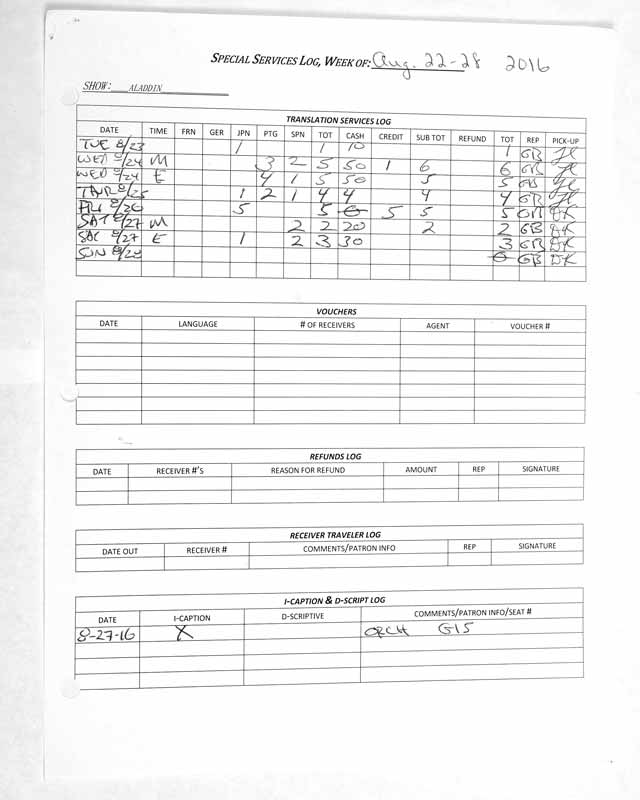 SPECIAL SERVICES LOG, WEEK OF: Aug. 22-28 2016
SHOW: ALADDIN
TRANSLATION SERVICES LOG
DATE TIME FRN GER JPN PTG SPN TOT CASH CREDIT SUB TOT REFUND TOT REP PICK-UP
TUE 8/23 1 1 10 1 GB
WED 8/24 M 3 2 5 50 1 6 6 GB
WED 8/24 E 4 1 5 50 5 5 GB
THUR 8/25 1 2 1 4 4 4 4 GB
FRI 8/26 5 5 0 5 5 5 GB DK
SAT 8/27 M 2 2 20 2 2 GB DK
SAT 8/27 E 1 2 3 30 3 GB DK
SUN 8/28 0 GB DK
VOUCHERS
DATE LANGUAGE # OF RECEIVERS AGENT VOUCHER #
REFUNDS LOG
DATE RECEIVER #'S REASON FOR REFUND AMOUNT REP SIGNATURE
RECEIVER TRAVELER LOG
DATE OUT RECEIVER # COMMENTS/PATRON INFO REP SIGNATURE
I-CAPTION & D-SCRIPT LOG
DATE I-CAPTION D-SCRIPTIVE COMMENTS/PATRON INFO/SEAT #
8-27-16 X ORCH G15